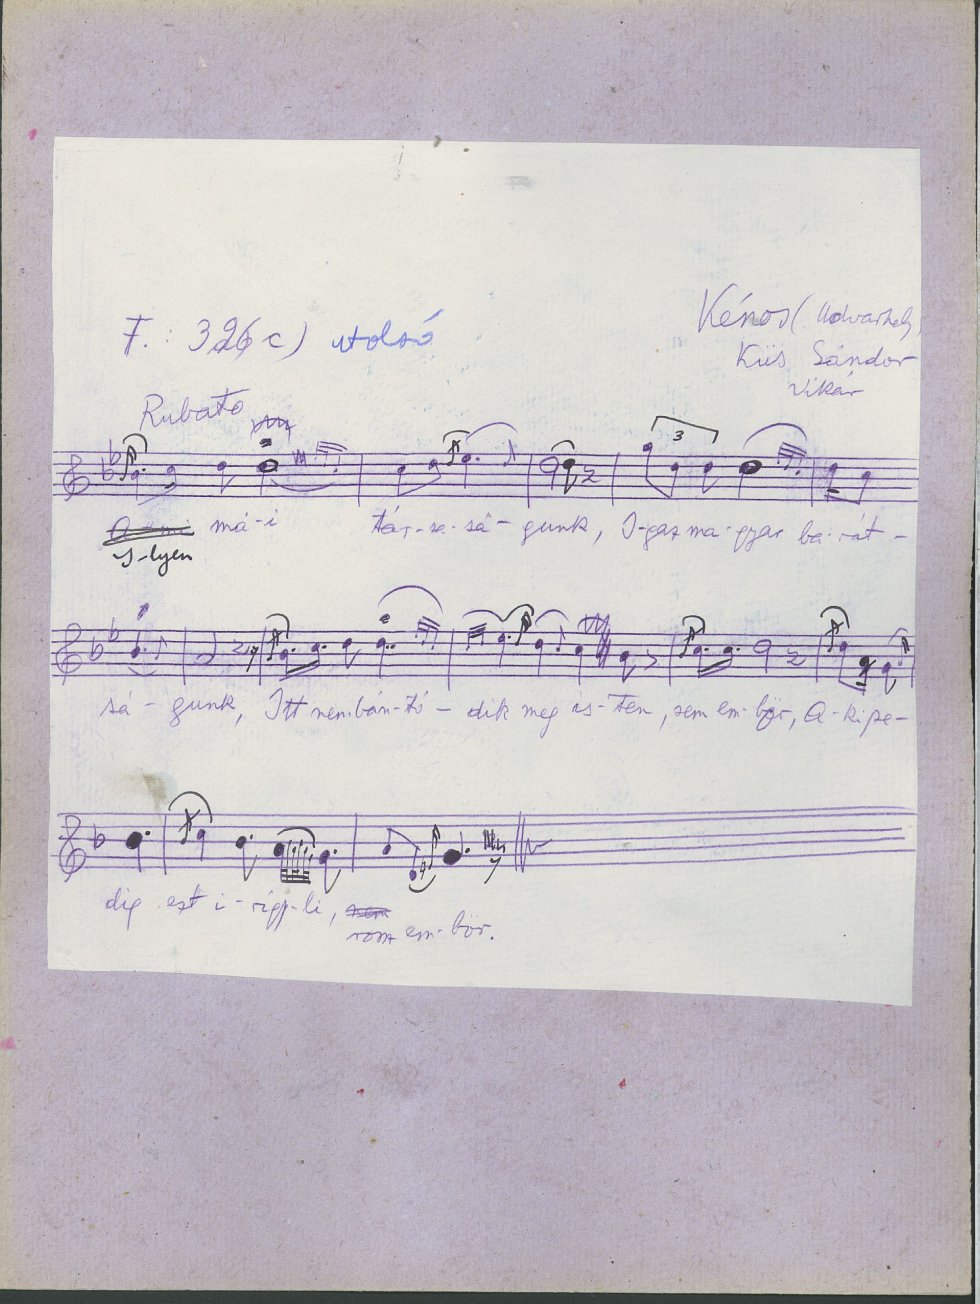 F.: 326 c) utolsó
Kénos (Udvarhely)
Kiis Sándor
Vikár
Rubato
3
A mi má-i tár-sa-sá-gunk, I-gaz ma-gyar ba-rát-
I-lyen
sá-gunk, Itt nem bán-tó-dik meg is-ten, sem em-bör, A-ki pe-
dig ezt i-rigy-li, nem
rossz em-bör.